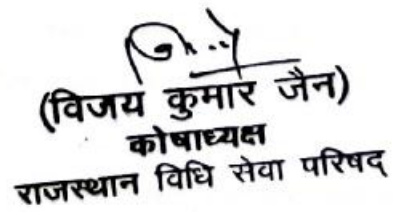 (विजय कुमार जैन)
कोषाध्यक्ष
राजस्थान विधि सेवा परिषद्